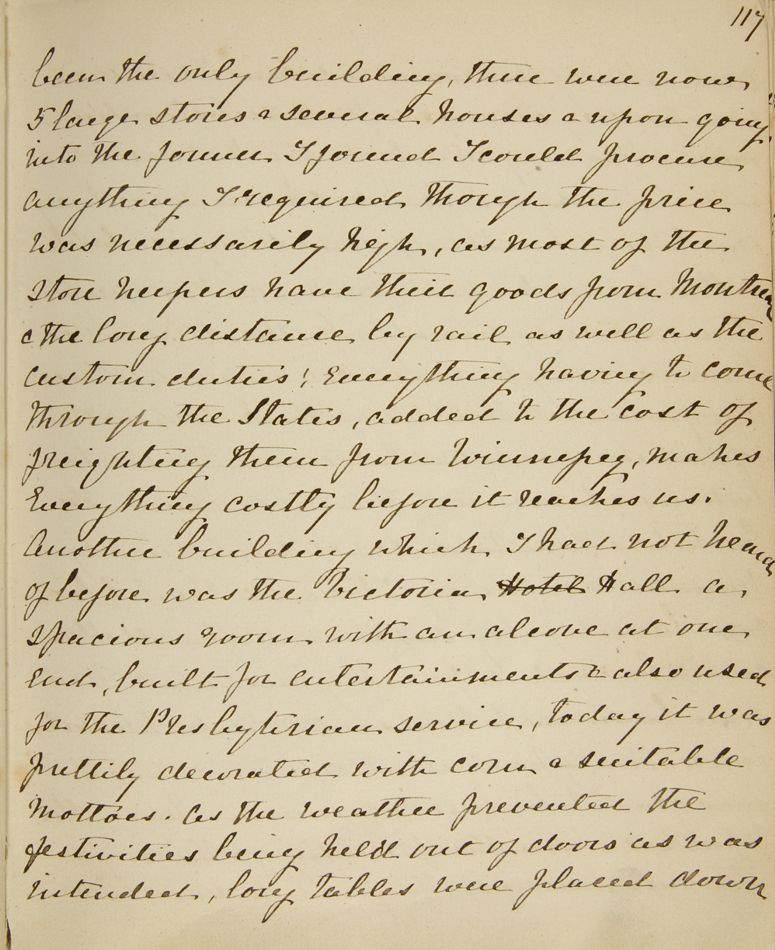 117
been the only building, there were now
5 large stores & several houses & upon going
into the former I found I could procure
anything I required though the price
was necessarily high, as most of the
store keepers have their goods from Montreal
& the long distance by rail as well as the
custom duties! Everything having to come
through the States, added to the cost of
freighting them from Winnepeg, makes
Everything costly before it reaches us.
Another building which I had not heard
of before was the Victoria Hotel Hall a
spacious room with an alcove at one
End, built for entertainments & also used
for the Presbyterian service, today it was
prettily decorated with corn & suitable
Mottoes. As the weather prevented the
festivities being held out of doors as was
intended, long tables were placed down